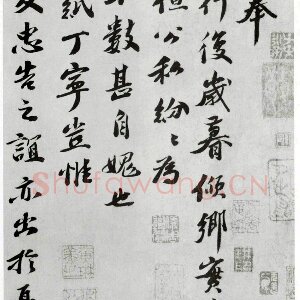 奉
行後歲暮傾鄉實
但公私紛〻為
數甚自媿也
紙丁寧豈惟
友忠告之誼亦出於
Shufawang.CN